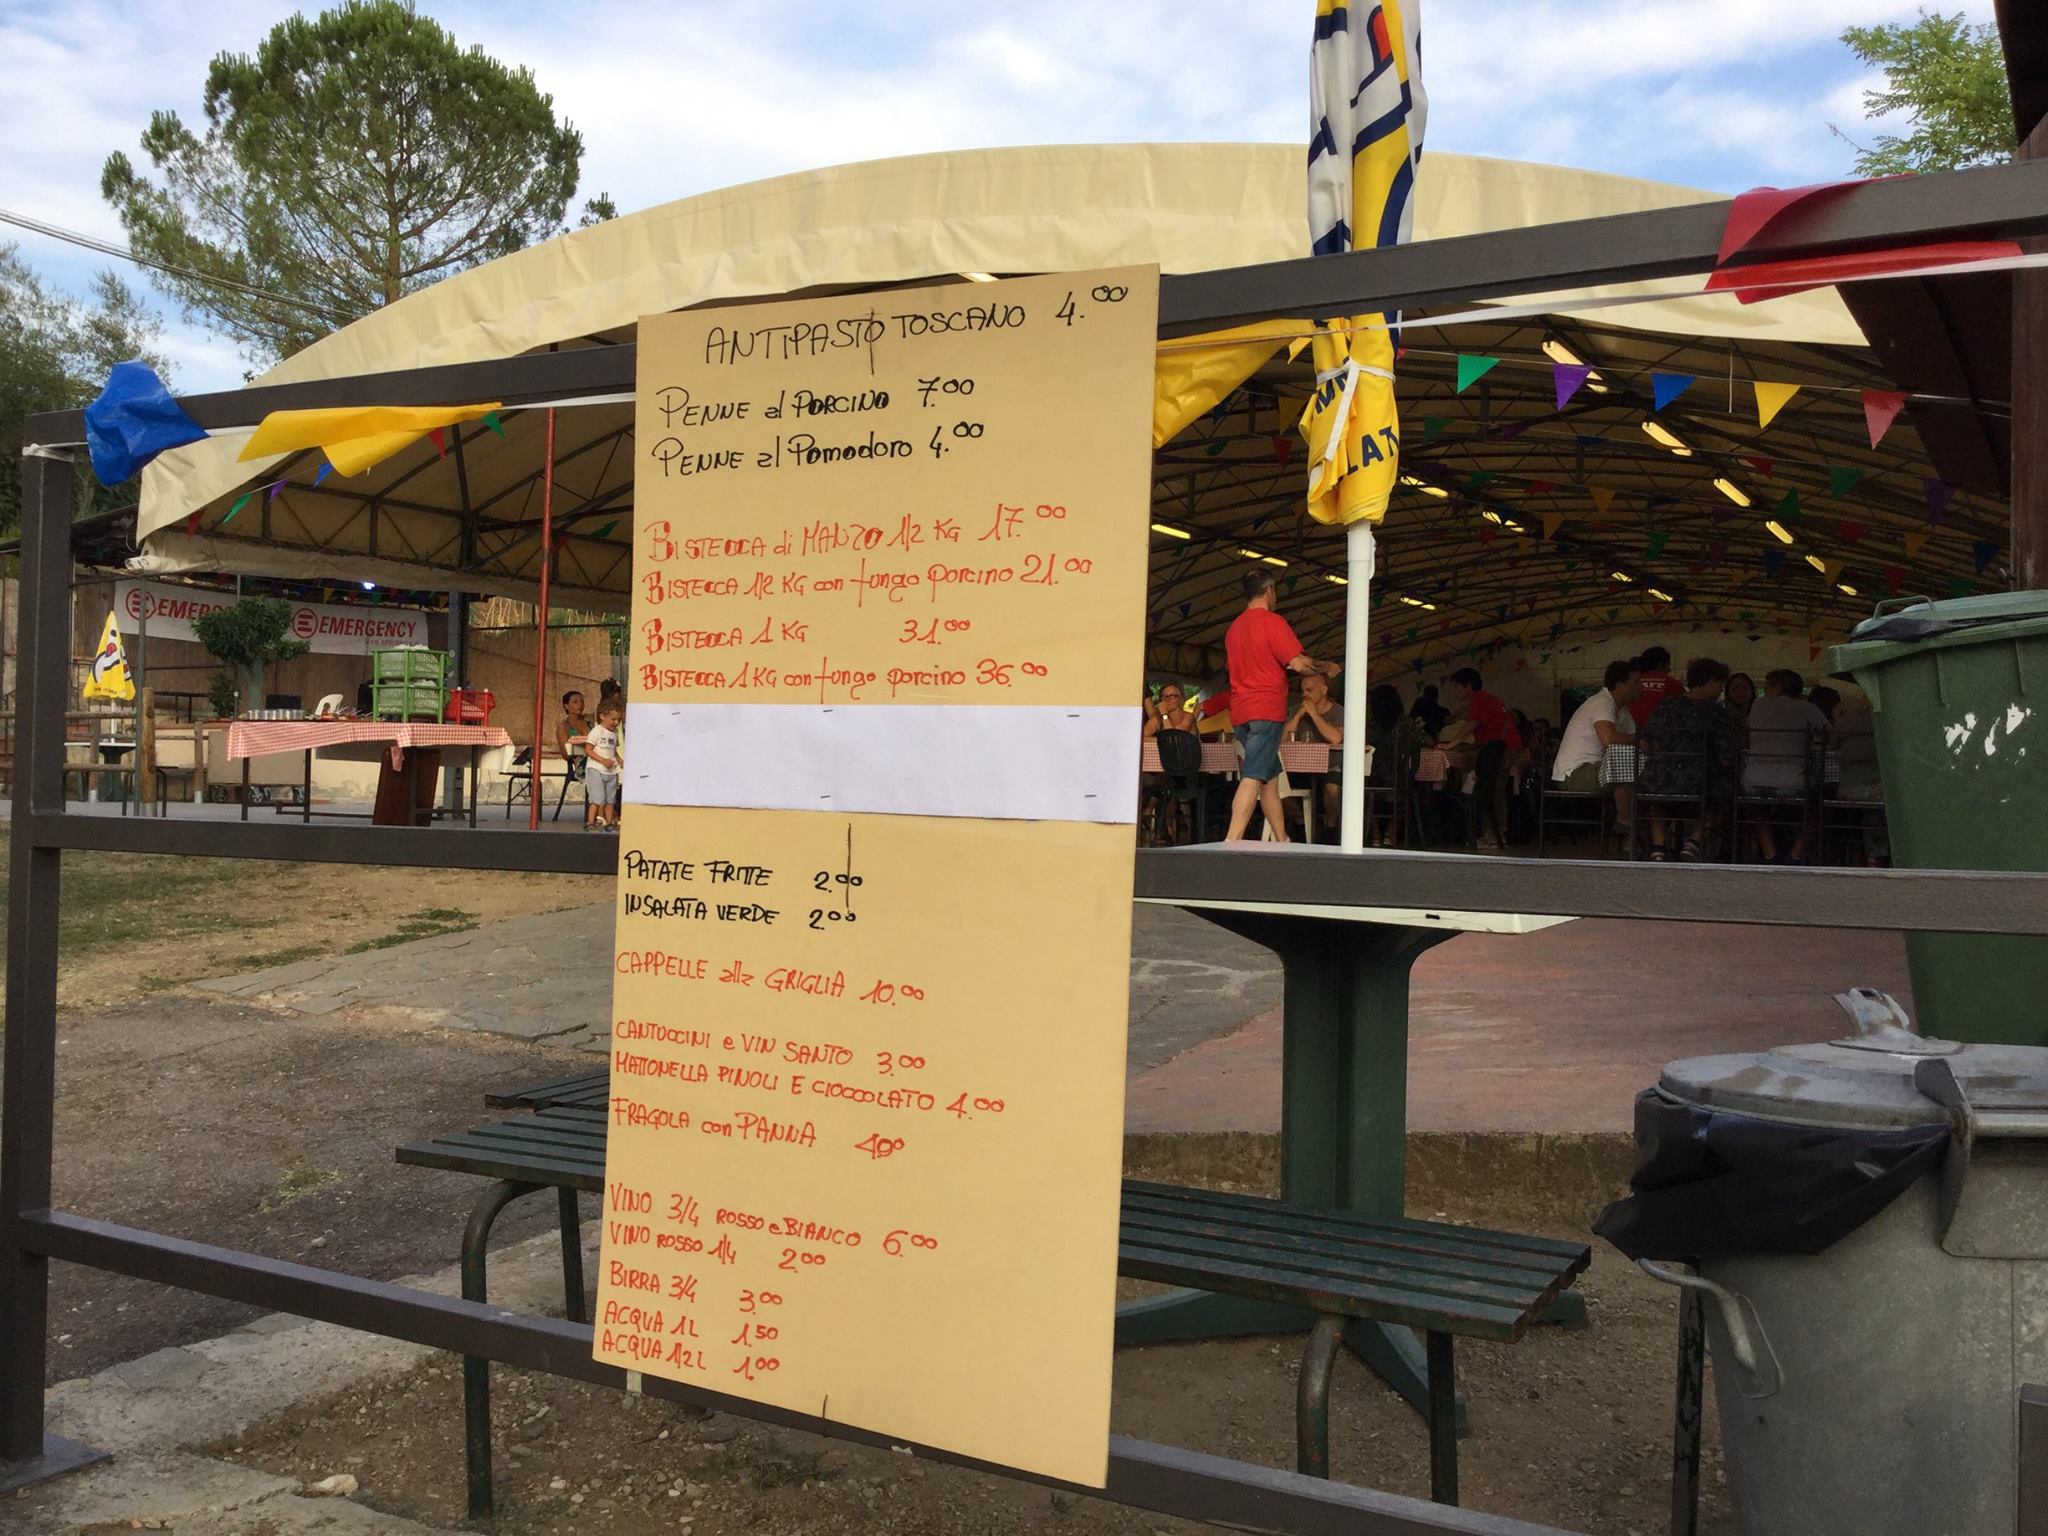 ANTIPASTO TOSCANO 4.00
PENNE al PORCINO 7.00
PENNE al Pomodoro 4.00
BISTECCA di MANZO 1/2 KG 17.00
BISTECCA 1/2 KG con fungo porcino 21.00
BISTECCA 1 KG 31.00
BISTECCA 1 KG con fungo porcino 36.00
PATATE FRITTE 2.00
INSALATA VERDE 2.00
CAPPELLE alla GRIGLIA 10.00
CANTUCCINI e VIN SANTO 3.00
MATTONELLA PINOLI E CIOCCOLATO 4.00
FRAGOLA con PANNA 4.00
VINO 3/4 ROSSO e BIANCO 6.00
VINO ROSSO 1/4 2.00
BIRRA 3/4 3.00
ACQUA 1L 1.50
ACQUA 1/2 L 1.00
EMERGENCY